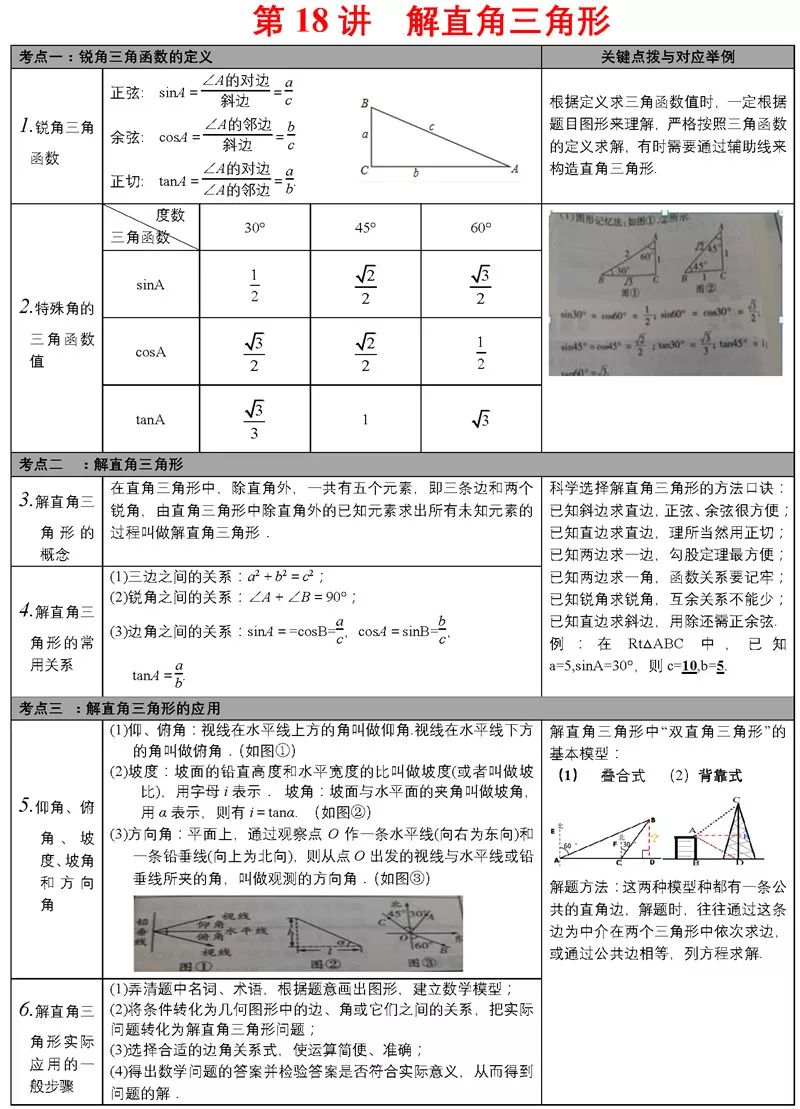 第 18 讲 解直角三角形
考点一：锐角三角函数的定义
关键点拨与对应举例
1.锐角三角
函数
正弦: sinA=∠A的对边/斜边=a/c
余弦: cosA=∠A的邻边/斜边=b/c
正切: tanA=∠A的对边/∠A的邻边=a/b.
B
a
c
C
b
A
根据定义求三角函数值时，一定根据
题目图形来理解，严格按照三角函数
的定义求解，有时需要通过辅助线来
构造直角三角形.
2.特殊角的
三角函数
值
度数
三角函数
30°
45°
60°
sinA
1/2
√2/2
√3/2
cosA
√3/2
√2/2
1/2
tanA
√3/3
1
√3
(1)图形记忆法：如图①、②所示.
A
2
60°
1
30°
B
√3
C
图①
A
√2
45°
1
45°
B
1
C
图②
sin30° = cos60° = 1/2；sin60° = cos30° = √3/2；
sin45°=cos45°=√2/2；tan30°=√3/3；tan45°=1；
tan60°=√3.
考点二 ：解直角三角形
3.解直角三
角形的
概念
在直角三角形中，除直角外，一共有五个元素，即三条边和两个
锐角，由直角三角形中除直角外的已知元素求出所有未知元素的
过程叫做解直角三角形．
科学选择解直角三角形的方法口诀：
已知斜边求直边，正弦、余弦很方便；
已知直边求直边，理所当然用正切；
已知两边求一边，勾股定理最方便；
已知两边求一角，函数关系要记牢；
已知锐角求锐角，互余关系不能少；
已知直边求斜边，用除还需正余弦.
例：在 Rt△ABC 中，已知
a=5,sinA=30°，则 c=10,b=5.
4.解直角三
角形的常
用关系
(1)三边之间的关系：a²＋b²＝c²；
(2)锐角之间的关系：∠A＋∠B＝90°；
(3)边角之间的关系：sinA＝=cosB=a/c，cosA＝sinB=b/c，
tanA＝a/b.
考点三 ：解直角三角形的应用
5.仰角、俯
角、坡
度、坡角
和方向
角
(1)仰、俯角：视线在水平线上方的角叫做仰角.视线在水平线下方
的角叫做俯角．（如图①）
(2)坡度：坡面的铅直高度和水平宽度的比叫做坡度(或者叫做坡
比)，用字母 i 表示． 坡角：坡面与水平面的夹角叫做坡角，
用 α 表示，则有 i＝tanα. （如图②）
(3)方向角：平面上，通过观察点 O 作一条水平线(向右为东向)和
一条铅垂线(向上为北向)，则从点 O 出发的视线与水平线或铅
垂线所夹的角，叫做观测的方向角．（如图③）
铅
垂
线
视线
仰角
水平线
俯角
视线
图①
h
α
l
图②
北
45°
30°
A
C
O
东
60°
B
图③
解直角三角形中“双直角三角形”的
基本模型：
（1） 叠合式 （2）背靠式
北
E
60°
A
北
F
30°
C
B
?
D
C
A
E
B
D
解题方法：这两种模型种都有一条公
共的直角边，解题时，往往通过这条
边为中介在两个三角形中依次求边，
或通过公共边相等，列方程求解.
6.解直角三
角形实际
应用的一
般步骤
(1)弄清题中名词、术语，根据题意画出图形，建立数学模型；
(2)将条件转化为几何图形中的边、角或它们之间的关系，把实际
问题转化为解直角三角形问题；
(3)选择合适的边角关系式，使运算简便、准确；
(4)得出数学问题的答案并检验答案是否符合实际意义，从而得到
问题的解．